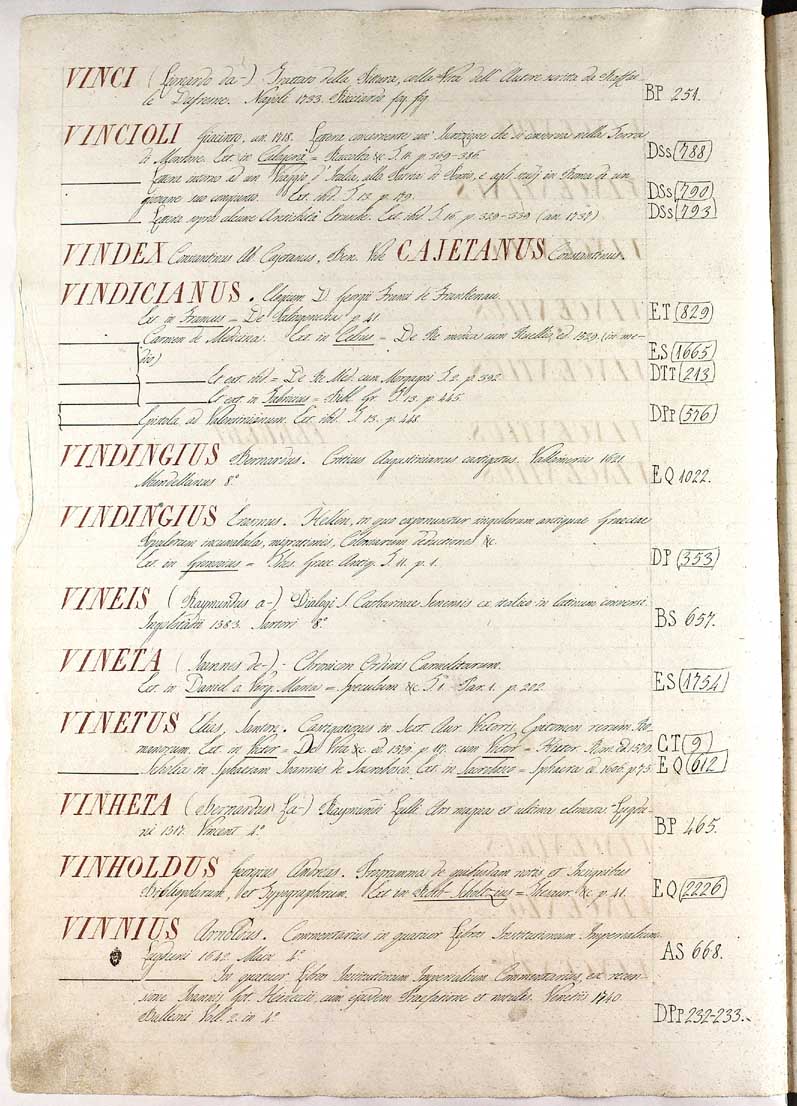 VINCI (Leonardo da-) Trattato della Pittura, colla Vita dell' Autore scritta da Raffae
le Dufresne. Napoli 1733. Ricciardo fog. fig. BP 251.
VINCIOLI Giacinto, an. 1718. Lettera concernente un' Iscrizione che si conserva nella Terra
di Montone. Ext. in Calogerà = Raccolta &c T. p. 369-386. DSs (788)
Lettera intorno ad un Viaggio d'Italia, alla di in Roma di un
giovane suo congiunto. Ext. ibid. T. 13. p. 179. DSs (790)
Lettera sopra alcune Antichità Etrusche. Ext. ibid. T. 16. p. 329-339 (an. 1738) DSs (793)
VINDEX Constantinus Cajetanus, Ben. Vide CAJETANUS Constantinus.
VINDICIANUS. Elogium D. Georgii Franci de Frankenau.
Ext. in Francus = De Palingenesia p. 41. ET (829)
Carmen de Medicina. Ext. in Celsus = De Re medica cum ed. 1529. (in me-
dio) ES (1665)
Et ext. ibid = De Re Med. cum Morgagni T. 2. p. 592. DTT (213)
Et ext. in Fabricius = Bibl. Gr. T. 13. p. 445.
Epistola ad Valentinianum. Ext. ibid. T. 13. p. 448. DPP (576)
VINDINGIUS Bernardus. Criticus Augustinianus castigatus. 1621.
8° EQ 1022.
VINDINGIUS Erasmus. Hellen, in quo exponuntur singulorum antiquae Graeciae
Populorum incunabula, migrationes, Coloniarum deductiones &c.
Ext. in Gronovius = Thes. Graec. Antiq. T. 11. p. 1. DP (353)
VINEIS (Raymundus a-) Dialogi S. Catharinae Senensis ex italico in latinum conversi.
Ingolstadii 1583. Sartori 8° BS 657.
VINETA (Joannes de-) - Chronicon Ordinis Carmelitarum.
Ext. in Daniel a Virg. Maria = Speculum &c. T. 1. Par. 1. p. 202. ES (1754)
VINETUS Elias, Santon. Castigationes in Sext. Aur. Victoris, Epitomen rerum Ro
manorum. Ext. in Victor = De Vita &c. ed. 1579. p. 117. cum Victor = Histor. Rom. Ed. 1579. CT (9)
Scholia in Sphaeram Joannis de Sacrobosco. Ext. in Sacrobosco = Sphaera ed. 1606. p. 75. EQ (612)
VINHETA (Bernardus La-) Raymundi Lulli Ars magna et ultima . Lugdu-
ni 1517. Vincent 4° BP 465.
VINHOLDUS Georgius Andreas. Programma de quibusdam notis et Insignibus
Bibliopolarum, Typographorum. Ext. in = Thesaur. &c. p. 41. EQ (2226)
VINNIUS Arnoldus. Commentarius in quatuor Libros Institutionum Imperialium.
Lugduni 1642. Maire 4° AS 668.
In quatuor Libros Institutionum Imperialium Commentarius, ex recen-
sione Joannis Got. Heineccii, cum ejusdem Praefatione et notulis. Venetiis 1740.
Balleoni Voll. 2. in 4° DPP 232-233.